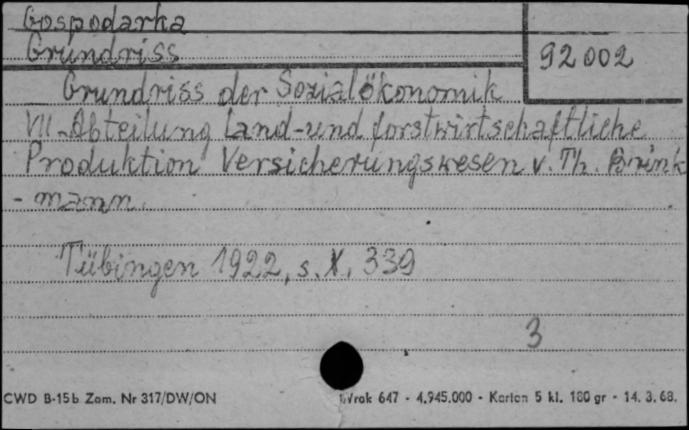 Gospodarka
Grundriss
92 002
Grundriss der Sozialökonomik
VII-Abteilung Land-und forstwirtschaftliche
Produktion Versicherungswesen v. Th. Brink
-mann.
Tübingen 1922, s. X, 339
3
CWD B-15b Zam. Nr 317/DW/ON
647 - 4.945.000 - Karton 5 kl. 180 gr - 14. 3. 68.